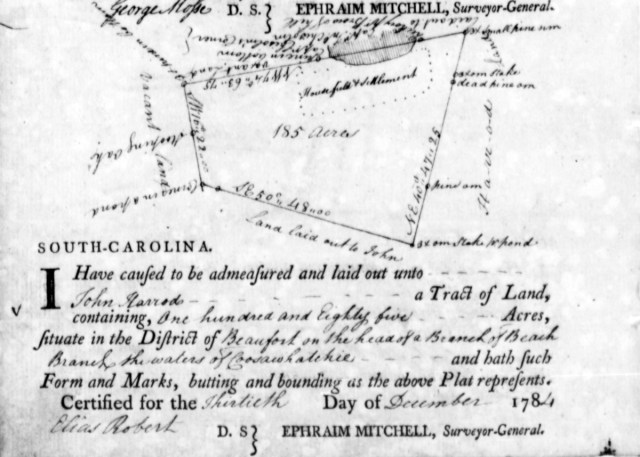 George Mosse D. S. } EPHRAIM MITCHELL, Surveyor-General.
small pine nm
3xom stake
dead pine nm
House field & Settlement
185 Acres
Vacant land
Corner in a pond
SE 50° 48=00
NE 40° 47=25
pine nm
Harrod
Land laid out to John
3xom Stake W pond
SOUTH-CAROLINA.
I Have caused to be admeasured and laid out unto
John Harrod a Tract of Land,
containing, One hundred and Eighty five Acres,
situate in the District of Beaufort on the head of a Branch of Beach
Branch the waters of Coosawhatchie and hath such
Form and Marks, butting and bounding as the above Plat represents.
Certified for the Thirtieth Day of December 1784
Elias Robert D. S } EPHRAIM MITCHELL, Surveyor-General.